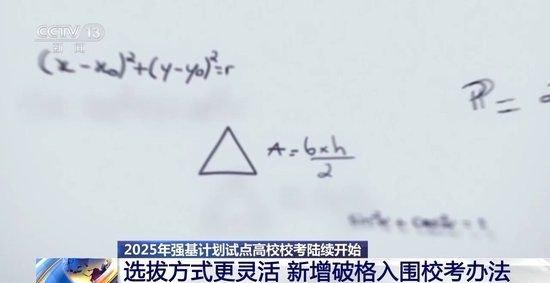 CCTV 13
新闻
(x-x₀)²+(y-y₀)²=r
P=
A=b×h/2
2025年强基计划试点高校校考陆续开始
选拔方式更灵活 新增破格入围校考办法